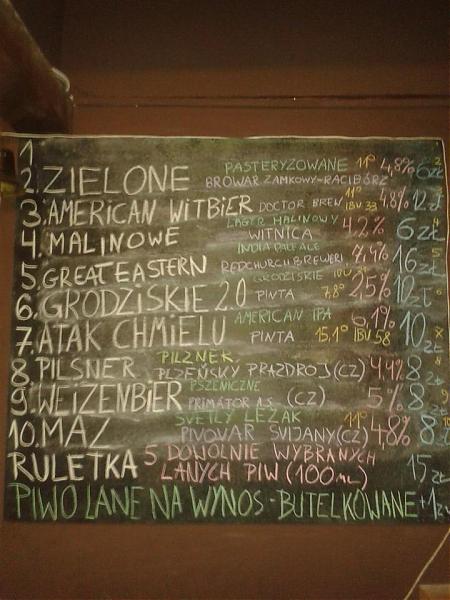 1
PASTERYZOWANE 11° 4,8% 6zł
2. ZIELONE BROWAR ZAMKOWY-RACIBÓRZ
3. AMERICAN WITBIER DOCTOR BREW 11° IBU 33 4,8% 12zł
LAGER MALINOWY
4. MALINOWE WITNICA 4,2% 6zł
INDIA PALE ALE
5. GREAT EASTERN REDCHURCH BREWERY 7,4% 16zł
GRODZISKIE
6. GRODZISKIE 2.0 PINTA 7,8° 2,5% 10zł
AMERICAN IPA 6,1%
7. ATAK CHMIELU PINTA 15,1° IBU 58 10zł
PILZNEK
8. PILSNER PLZEŃSKY PRAZDROJ (CZ) 4,4% 8zł
PSZENICZNE
9. WEIZENBIER PRIMÁTOR A.S. (CZ) 5% 8zł
SVETLY LEŻAK 11°
10. MAZ PIVOVAR SVIJANY (CZ) 4,8% 8zł
RULETKA 5 DOWOLNIE WYBRANYCH
LANYCH PIW (100ML) 15zł
PIWO LANE NA WYNOS - BUTELKOWANE +1zł